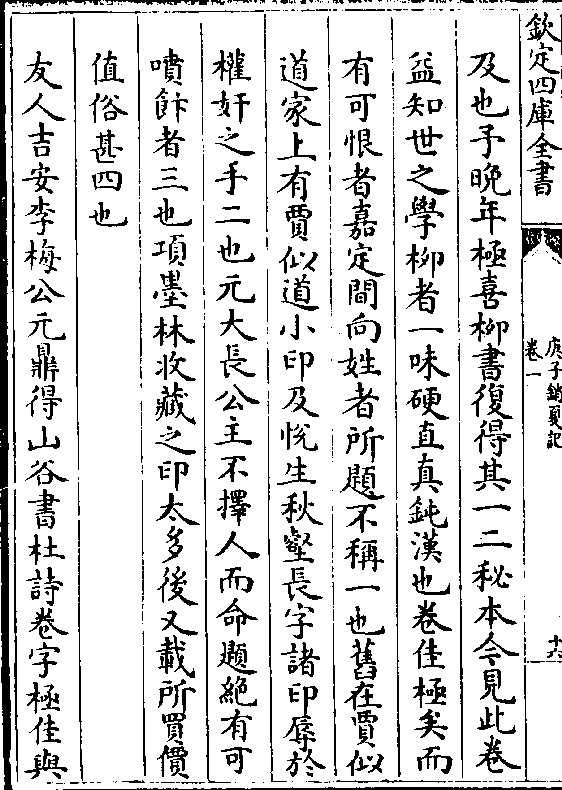 欽定四庫全書
庚子銷夏記
卷一
十六
及也予晚年極喜柳書復得其一二秘本今見此卷
益知世之學柳者一味硬直真鈍漢也卷佳極矣而
有可恨者嘉定間向姓者所題不稱一也舊在賈似
道家上有賈似道小印及恱生秋壑長字諸印辱於
權奸之手二也元大長公主不擇人而命題絶有可
噴飰者三也項墨林收藏之印太多後又載所買價
值俗甚四也
友人吉安李梅公元鼎得山谷書杜詩卷字極佳與